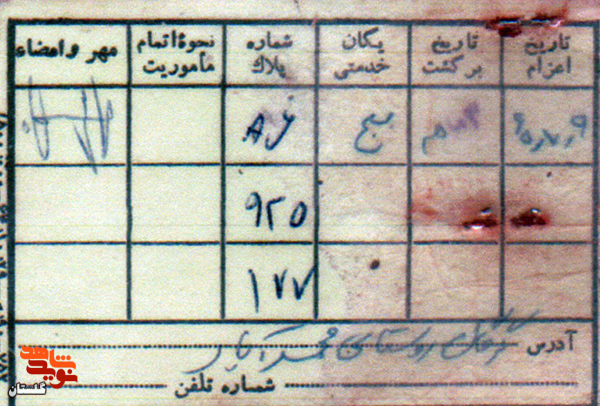 تاریخ اعزام	تاریخ برگشت	یگان خدمتی	شماره پلاك	نحوهٔ اتمام ماموریت	مهر و امضاء
AJ
۹۲۵
۱۷۷
آدرس روستای محمد آباد
شماره تلفن
نوید شاهد
گلستان